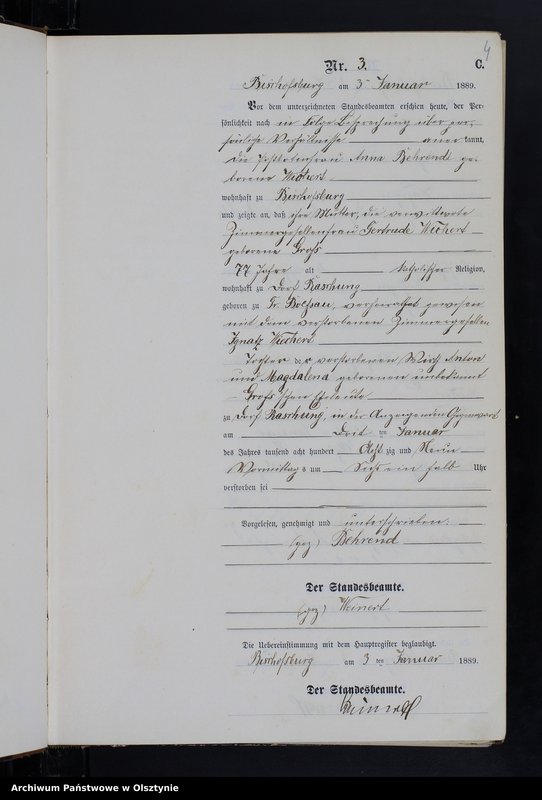 4
Nr. 3. C.
Bischofsburg am 3 Januar 1889.
Vor dem unterzeichneten Standesbeamten erschien heute, der Per-
sönlichkeit nach in Folge Besprechung über per-
sönliche Verhältnisse anerkannt,
die Anna Behrend ge-
borene Wichert
wohnhaft zu Bischofsburg
und zeigte an, daß ihre Mutter, die verwittwete
Zimmergesellenfrau Gertrude Wichert
geborene Groß
77 Jahre alt katholischer Religion,
wohnhaft zu Dorf Raschung
geboren zu Gr. Boessau, verheirathet gewesen
mit dem verstorbenen Zimmergesellen
Ignatz Wichert
Tochter der verstorbenen Wirth Anton
und Magdalena geborenen unbekannt
Groß'schen Eheleute
zu Dorf Raschung, in der Anzeigenden Gegenwart
am Januar
des Jahres tausend acht hundert Achtzig und Neun
Vormittags um ein halb Uhr
verstorben sei
Vorgelesen, genehmigt und unterschrieben:
(gez) Behrend
Der Standesbeamte.
(gez) Weinert
Die Uebereinstimmung mit dem Hauptregister beglaubigt.
Bischofsburg am 3 ten Januar 1889.
Der Standesbeamte.
Archiwum Państwowe w Olsztynie